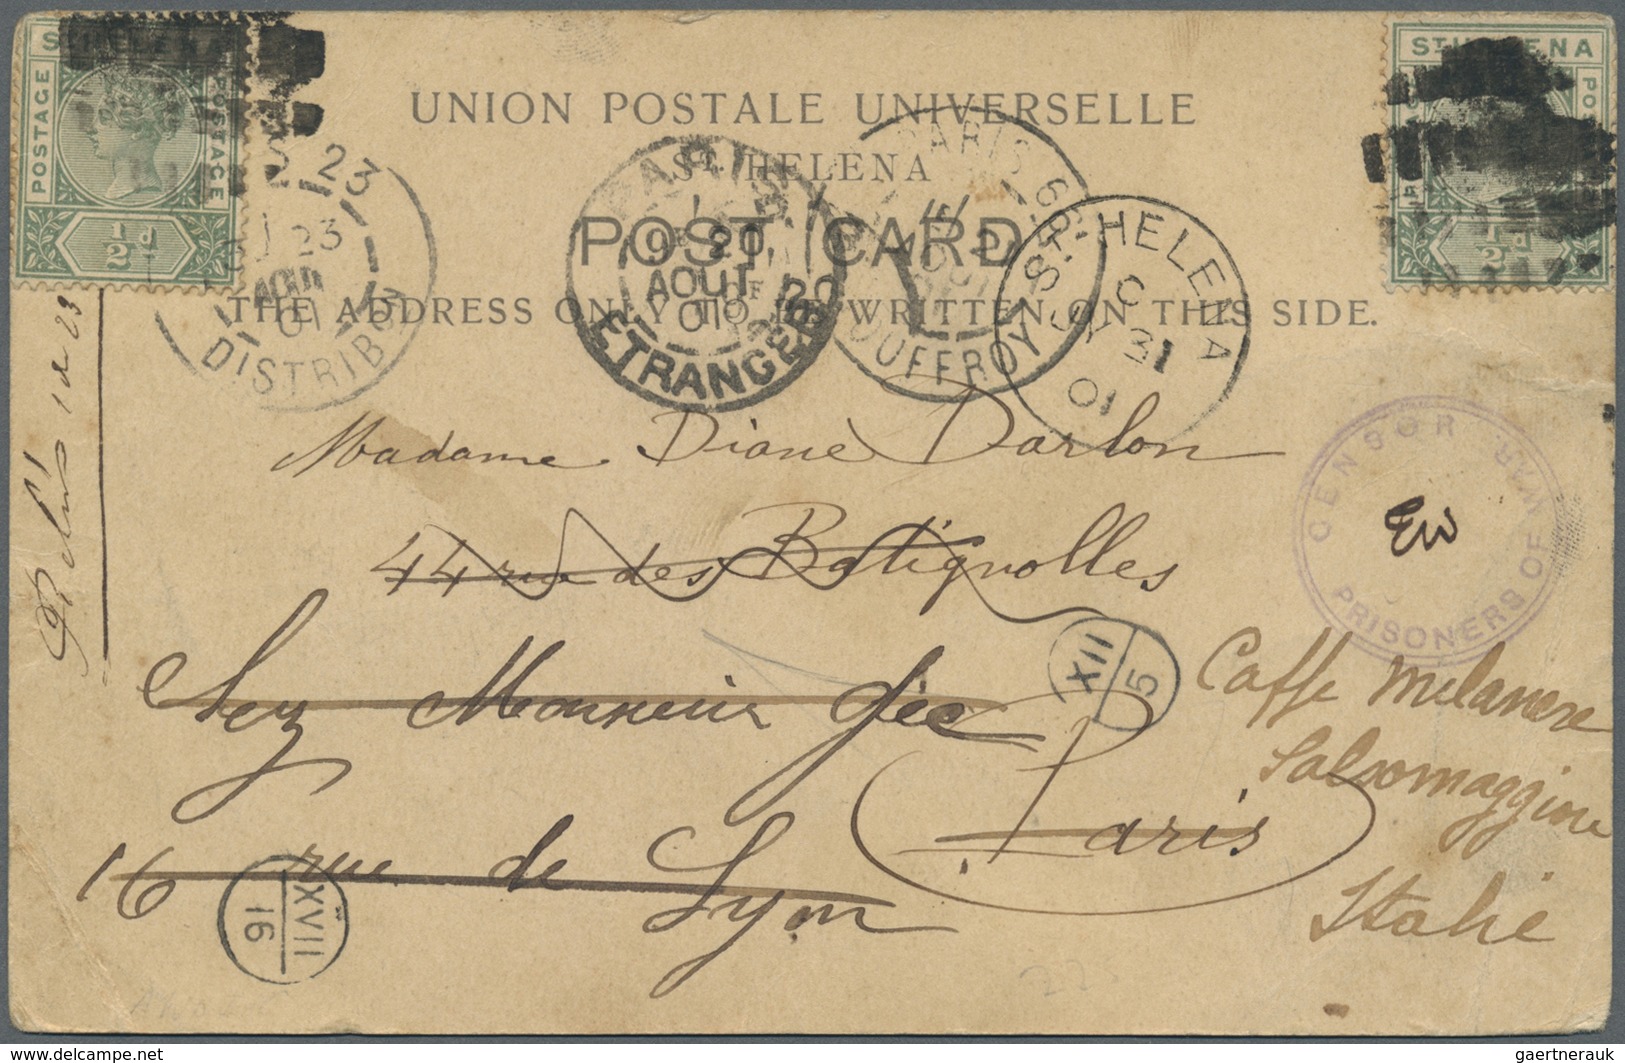 ST HELENA
POSTAGE
POSTAGE
½d
ST HELENA
½d
UNION POSTALE UNIVERSELLE
ST HELENA
POST CARD
THE ADDRESS ONLY TO BE WRITTEN ON THIS SIDE.
23
23
AOUT
01
DISTRIB
PARIS
20
AOUT
01
ETRANGER
PARIS 66
JOUFFROY
ST HELENA
C
JY 31
01
CENSOR
PRISONERS OF WAR
EW
Madame Diane Darlon
44 rue des Batignolles
Chez Monsieur
16 rue de Lyon
Paris
Caffe Milanese
Salsomaggiore
Italie
XII
5
XVII
16
22
delcampe.net
gaertnerauk